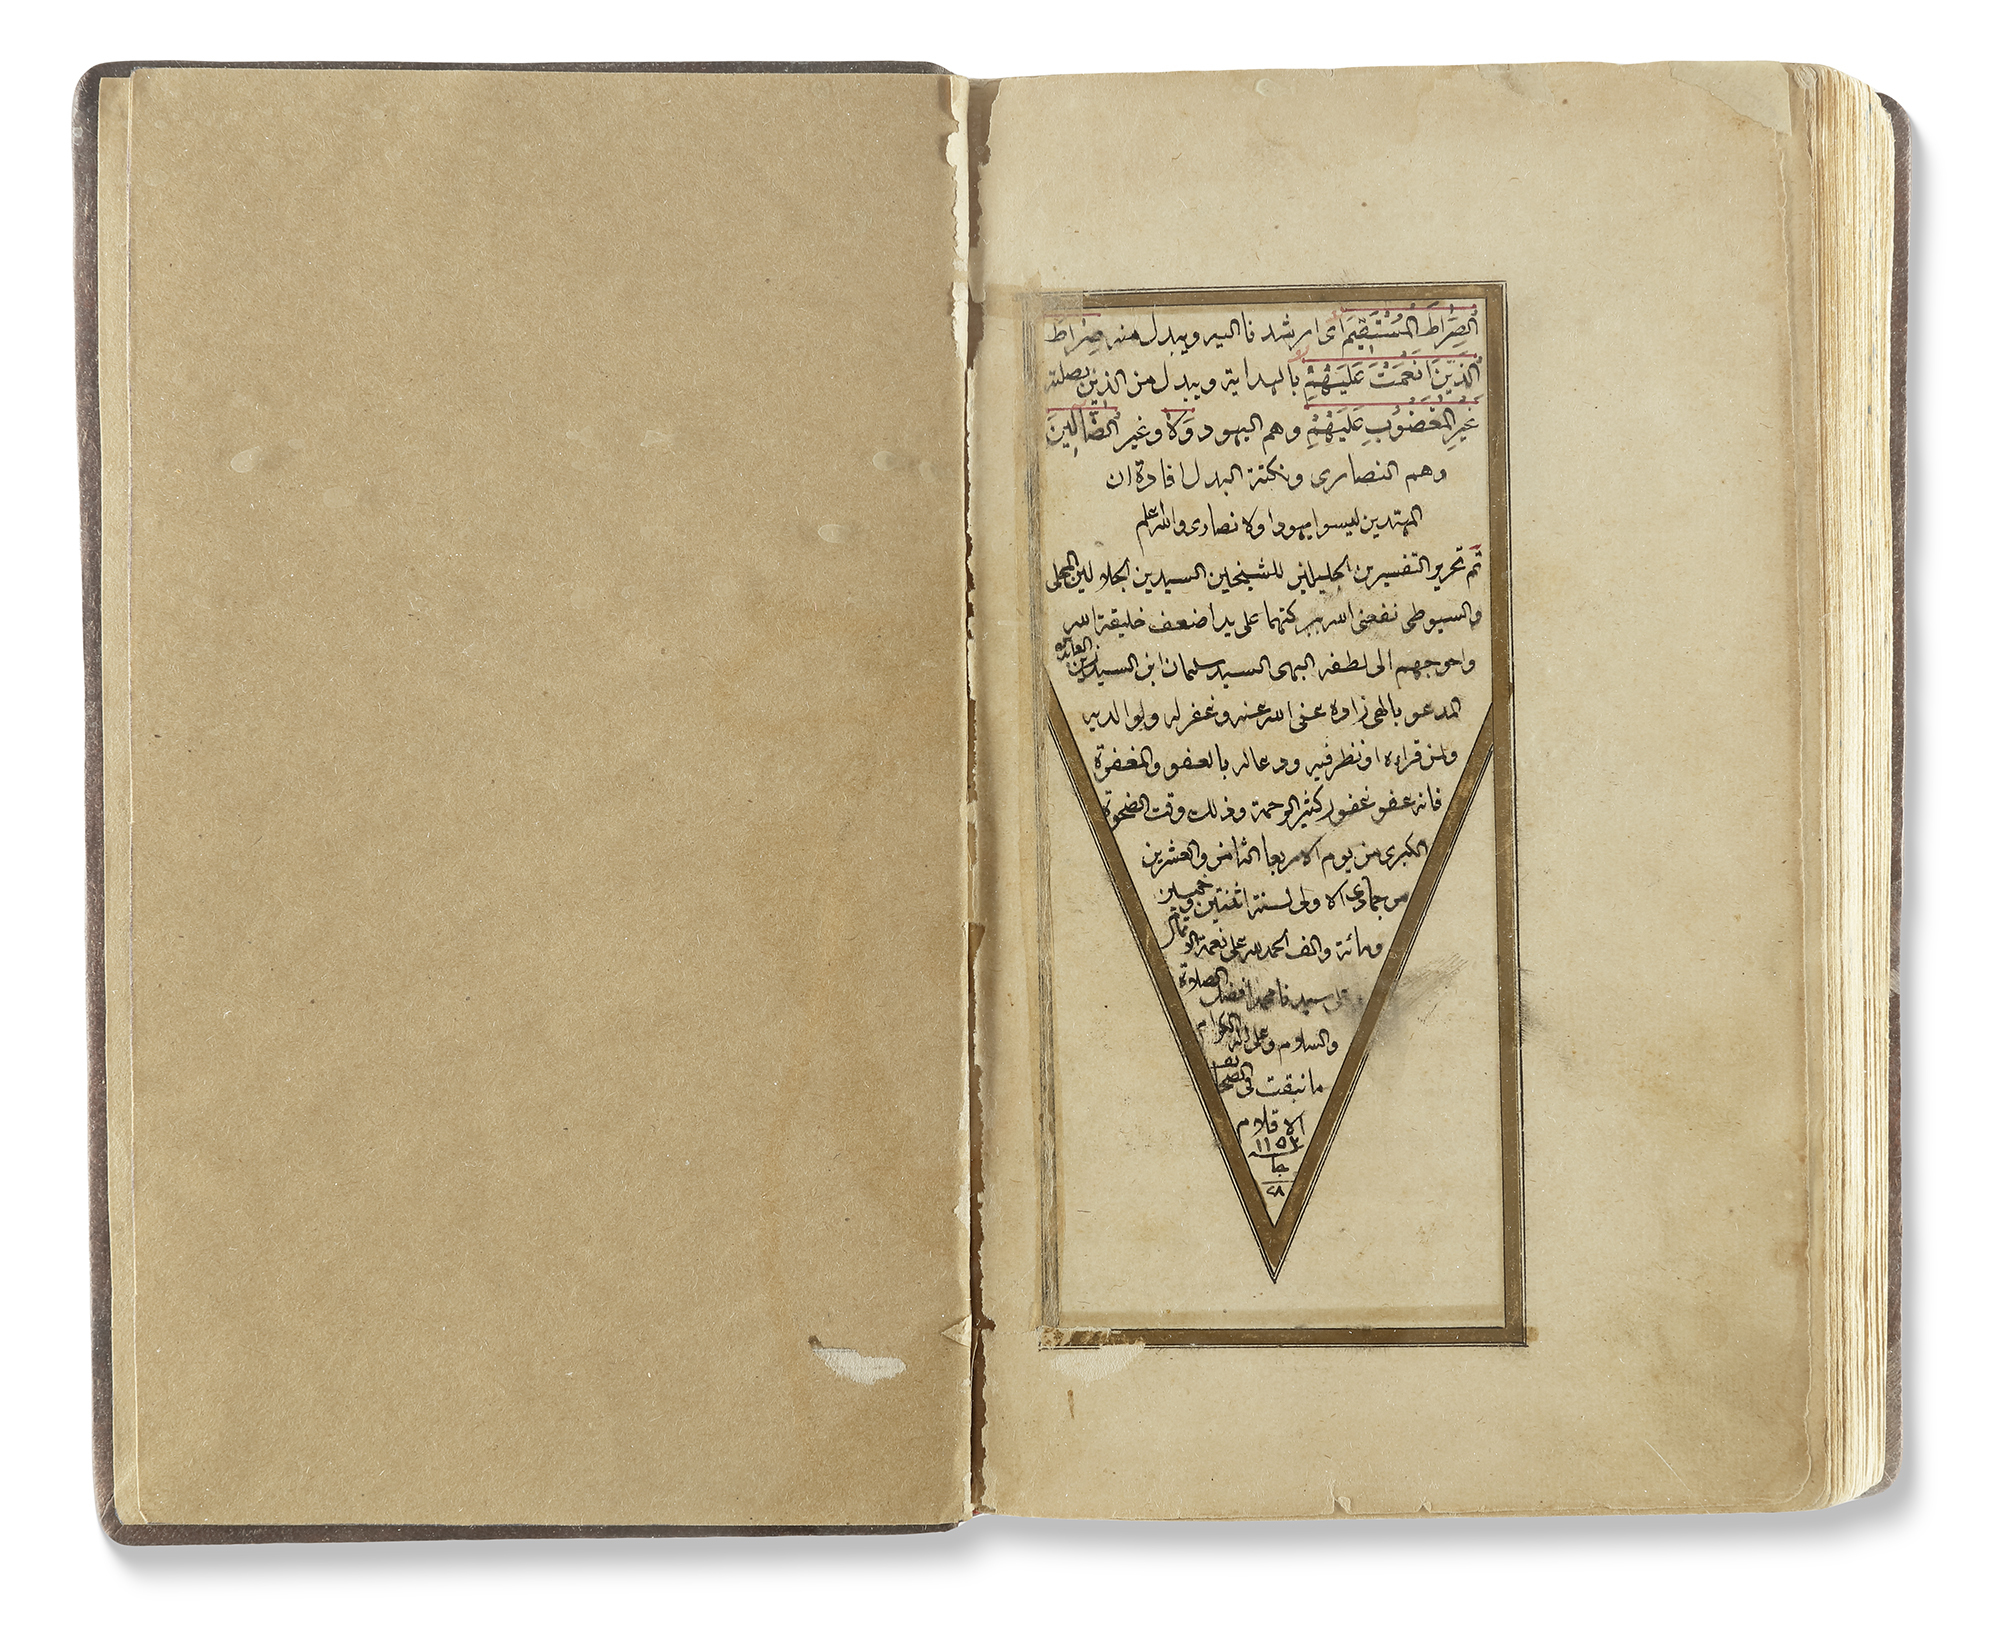 الصِّرَاطَ الْمُسْتَقِيمَ اى ارشدنا اليه ويبدل منه صِرَاطَ
الَّذِيْنَ اَنْعَمْتَ عَلَيْهِمْ بالهداية ويبدل من الذين بصلته
غَيْرِ الْمَغْضُوْبِ عَلَيْهِمْ وهم اليهود وَلَا وغير الضَّآلِّيْنَ
وهم النصارى ونكتة البدل افادة ان
المهتدين ليسوا يهودا ولا نصارى والله اعلم
تم تحرير التفسيرين الجليلين للشيخين السيدين الجلالين المحلى
والسيوطى نفعنى الله ببركتهما على يد اضعف خليقة الله
واحوجهم الى لطفه البهى السيد سلمان ابن السيد زين العابدين
المدعو بالهى زاده عفى الله عنه وغفر له ولوالديه
ولمن قراءه او نظر فيه ودعا له بالعفو والمغفرة
فانه عفو غفور كثير الرحمة وذلك وقت الضحوة
الكبرى من يوم الاربعا الثامن والعشرين
من جمادى الاولى لسنة اثنتين وخمسين
ومائة والف الحمد لله على نعمة الاتمام
على سيدنا محمد افضل الصلاة
والسلام وعلى اله الكرام
ما نبقت فى الصحايف
الاقلام
١١٥٢
جا
٢٨